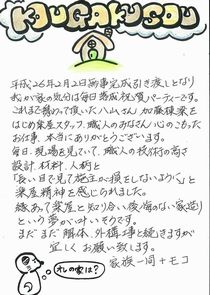 MUGAKUSOU
平成26年2月2日無事完成引き渡しとなり
我が家の気分は毎日落成祝賀パーティーです。
これまで携わって頂いた八ムさん 加藤棟梁を
はじめ楽屋スタッフ、職人のみなさん 心のこもった
お仕事、本当にありがとうございます。
毎日、現場を見ていて、職人の技術の高さ
設計、材料、人柄と
「長い目で見て施主が損をしないように」と
楽屋精神を感じられました。
縁あって楽屋と知り合い後悔のない家造り
という夢がかないそうです。
まだまだ解体、外構工事と続きますが
宜しくお願い致します。
家族一同+モコ
オレの家は?